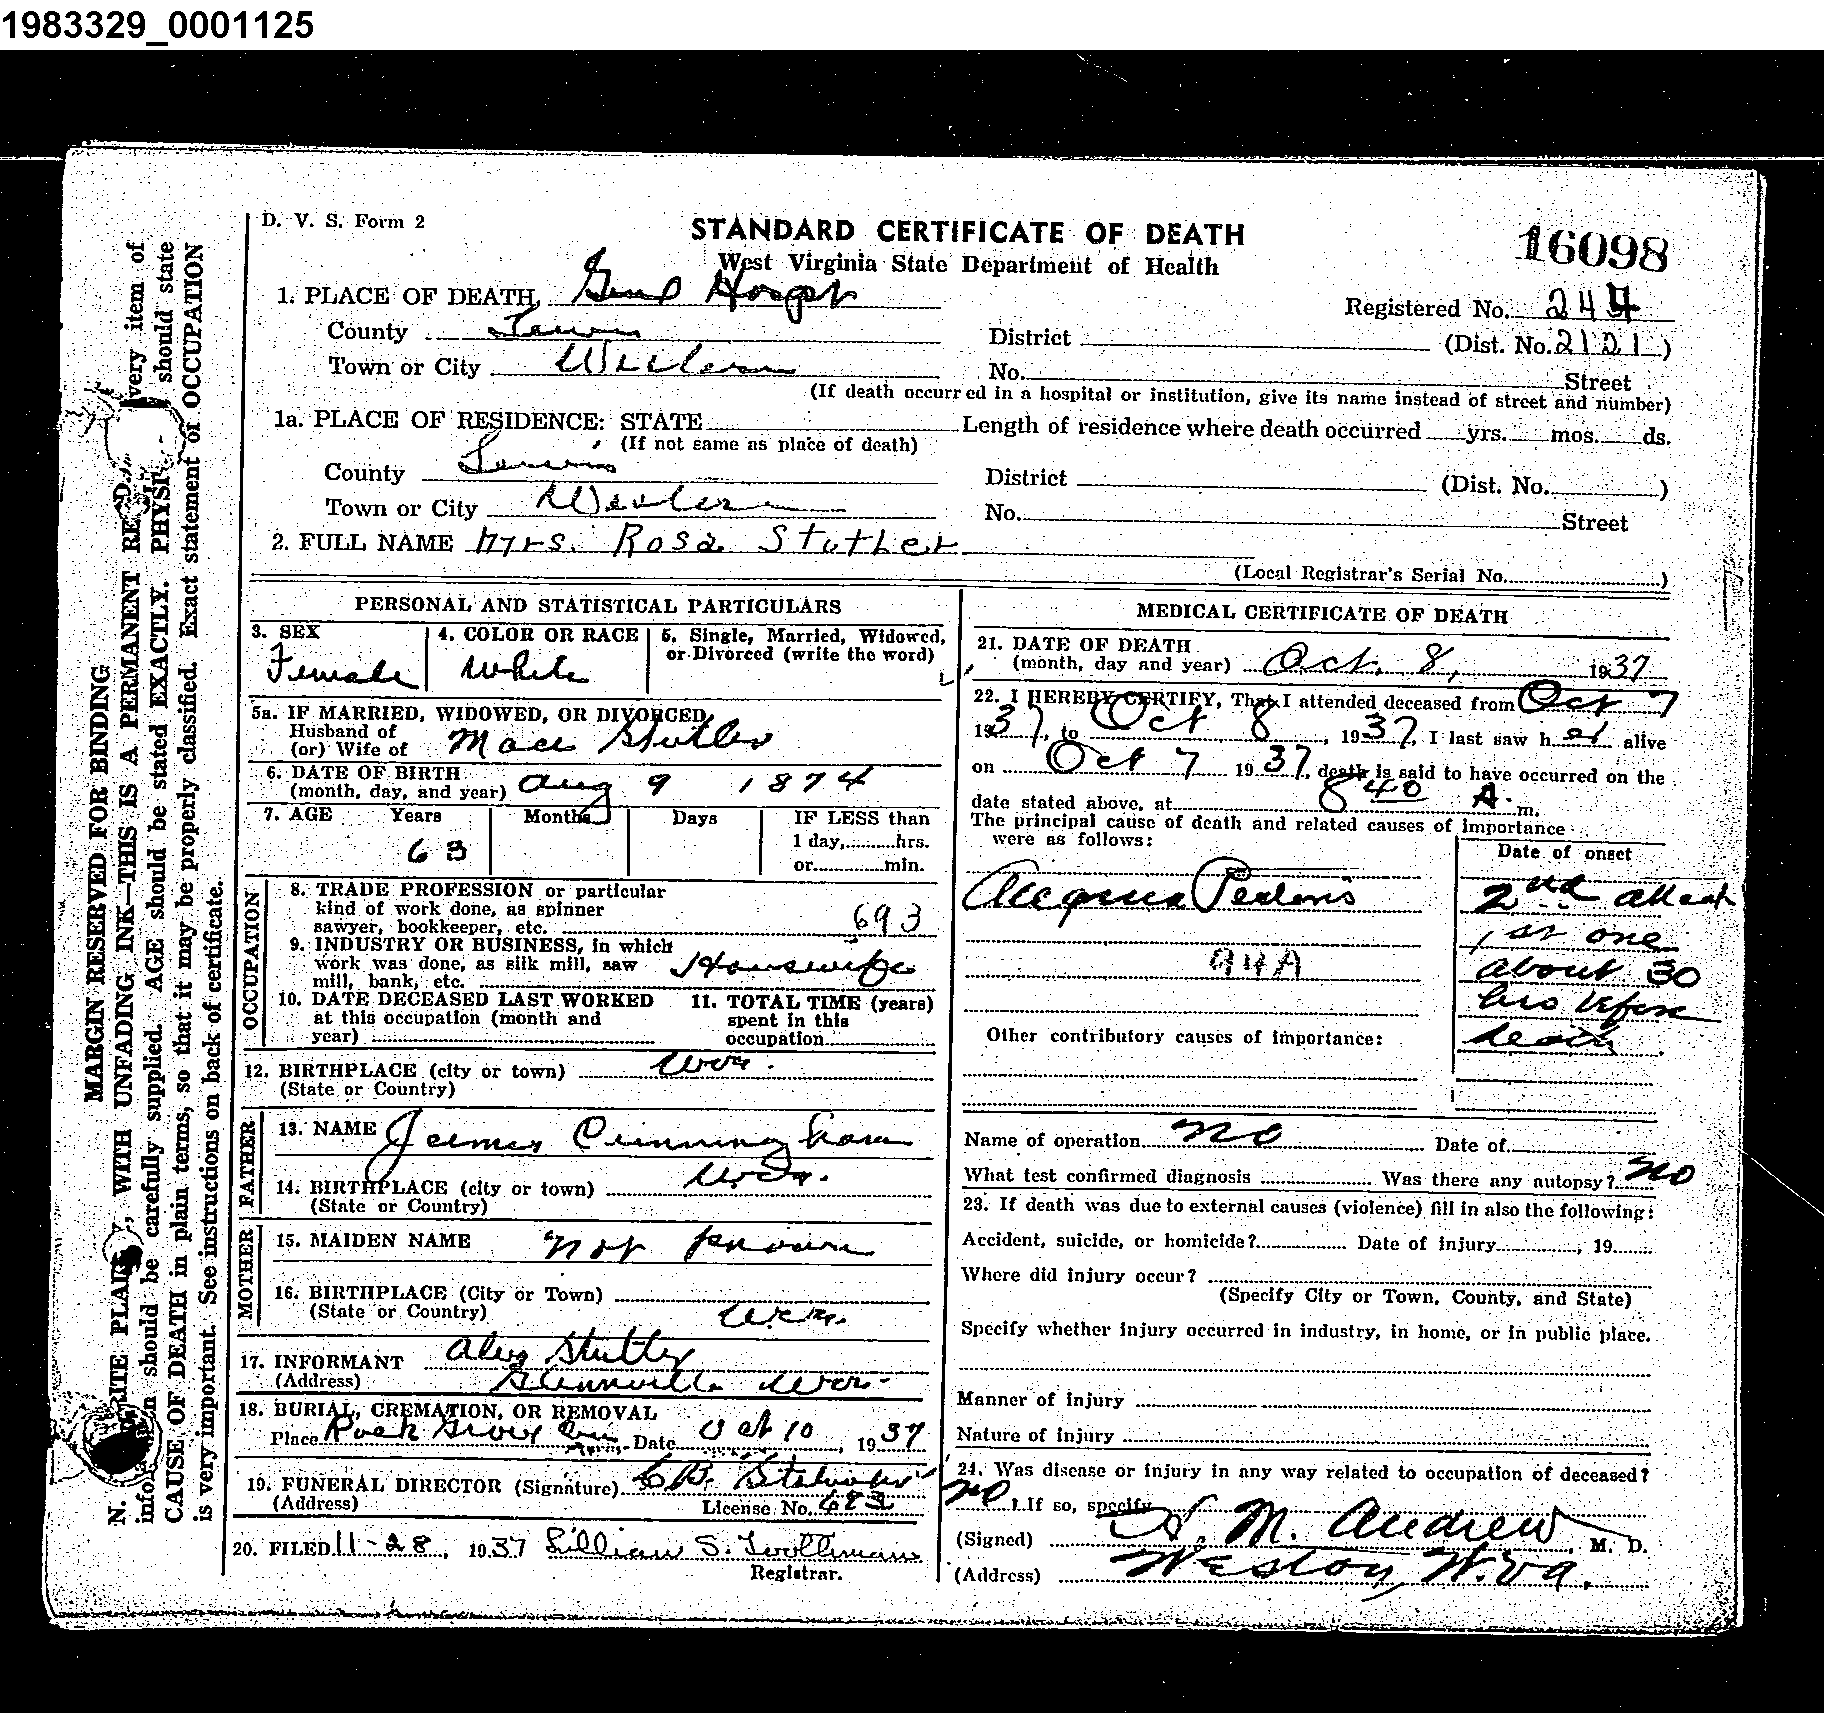 1983329_0001125
D. V. S. Form 2
STANDARD CERTIFICATE OF DEATH
16098
West Virginia State Department of Health
1. PLACE OF DEATH, Genl Hospt
Registered No. 244
County Lewis
District (Dist. No. 2121)
Town or City Weston
No. Street
(If death occurred in a hospital or institution, give its name instead of street and number)
1a. PLACE OF RESIDENCE: STATE
Length of residence where death occurred yrs. mos. ds.
(If not same as place of death)
County Lewis
District (Dist. No. )
Town or City Weston
No. Street
2. FULL NAME Mrs. Rosa Stutler
(Local Registrar's Serial No. )
PERSONAL AND STATISTICAL PARTICULARS
3. SEX
Female
4. COLOR OR RACE
White
5. Single, Married, Widowed,
or Divorced (write the word)
5a. IF MARRIED, WIDOWED, OR DIVORCED,
Husband of
(or) Wife of Mace Stutler
6. DATE OF BIRTH
(month, day, and year) Aug 9 1874
7. AGE Years Months Days IF LESS than
1 day, hrs.
63
or min.
OCCUPATION
8. TRADE PROFESSION or particular
kind of work done, as spinner
sawyer, bookkeeper, etc. 693
9. INDUSTRY OR BUSINESS, in which
work was done, as silk mill, saw
mill, bank, etc. Housewife
10. DATE DECEASED LAST WORKED
at this occupation (month and
year)
11. TOTAL TIME (years)
spent in this
occupation
12. BIRTHPLACE (city or town) W Va.
(State or Country)
FATHER
13. NAME James Cunningham
14. BIRTHPLACE (city or town) W.Va.
(State or Country)
MOTHER
15. MAIDEN NAME not known
16. BIRTHPLACE (City or Town)
(State or Country) W.Va.
17. INFORMANT Stutler
(Address) Glennville W.Va.
18. BURIAL, CREMATION, OR REMOVAL
Place Rock Grove Cem Date Oct 10, 1937
19. FUNERAL DIRECTOR (Signature) C B.
(Address) License No. 483
20. FILED 11-28, 1937 Lillian S.
Registrar.
MEDICAL CERTIFICATE OF DEATH
21. DATE OF DEATH
(month, day and year) Oct. 8, 1937
22. I HEREBY CERTIFY, That I attended deceased from Oct 7
1937, to Oct 8, 1937, I last saw her alive
on Oct 7 1937, death is said to have occurred on the
date stated above, at 8 40 A. m.
The principal cause of death and related causes of importance
were as follows:
Date of onset
Pectoris
94A
2nd attack
1st one
about 30
hrs before
death
Other contributory causes of importance:
Name of operation no Date of
What test confirmed diagnosis Was there any autopsy? no
23. If death was due to external causes (violence) fill in also the following:
Accident, suicide, or homicide? Date of injury , 19
Where did injury occur?
(Specify City or Town, County, and State)
Specify whether injury occurred in industry, in home, or in public place.
Manner of injury
Nature of injury
24. Was disease or injury in any way related to occupation of deceased?
no If so, specify
(Signed) H. M. Andrew, M. D.
(Address) Weston, W. Va.
MARGIN RESERVED FOR BINDING
WITH UNFADING INK—THIS IS A PERMANENT
should be carefully supplied. AGE should be stated EXACTLY. should state
CAUSE OF DEATH in plain terms, so that it may be properly classified. Exact statement of OCCUPATION
is very important. See instructions on back of certificate.